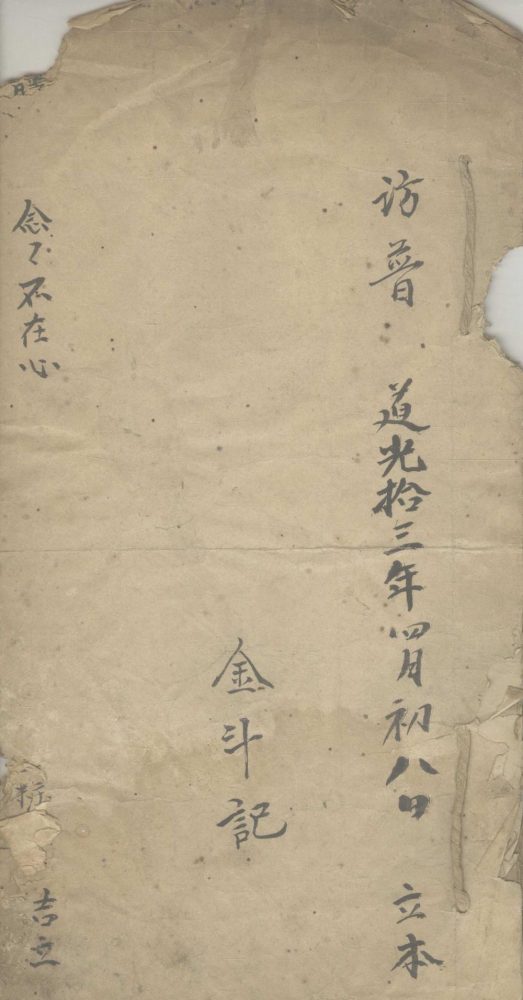 访普 道光拾三年四月初八日 立本
金斗記
念々不在心
吉立